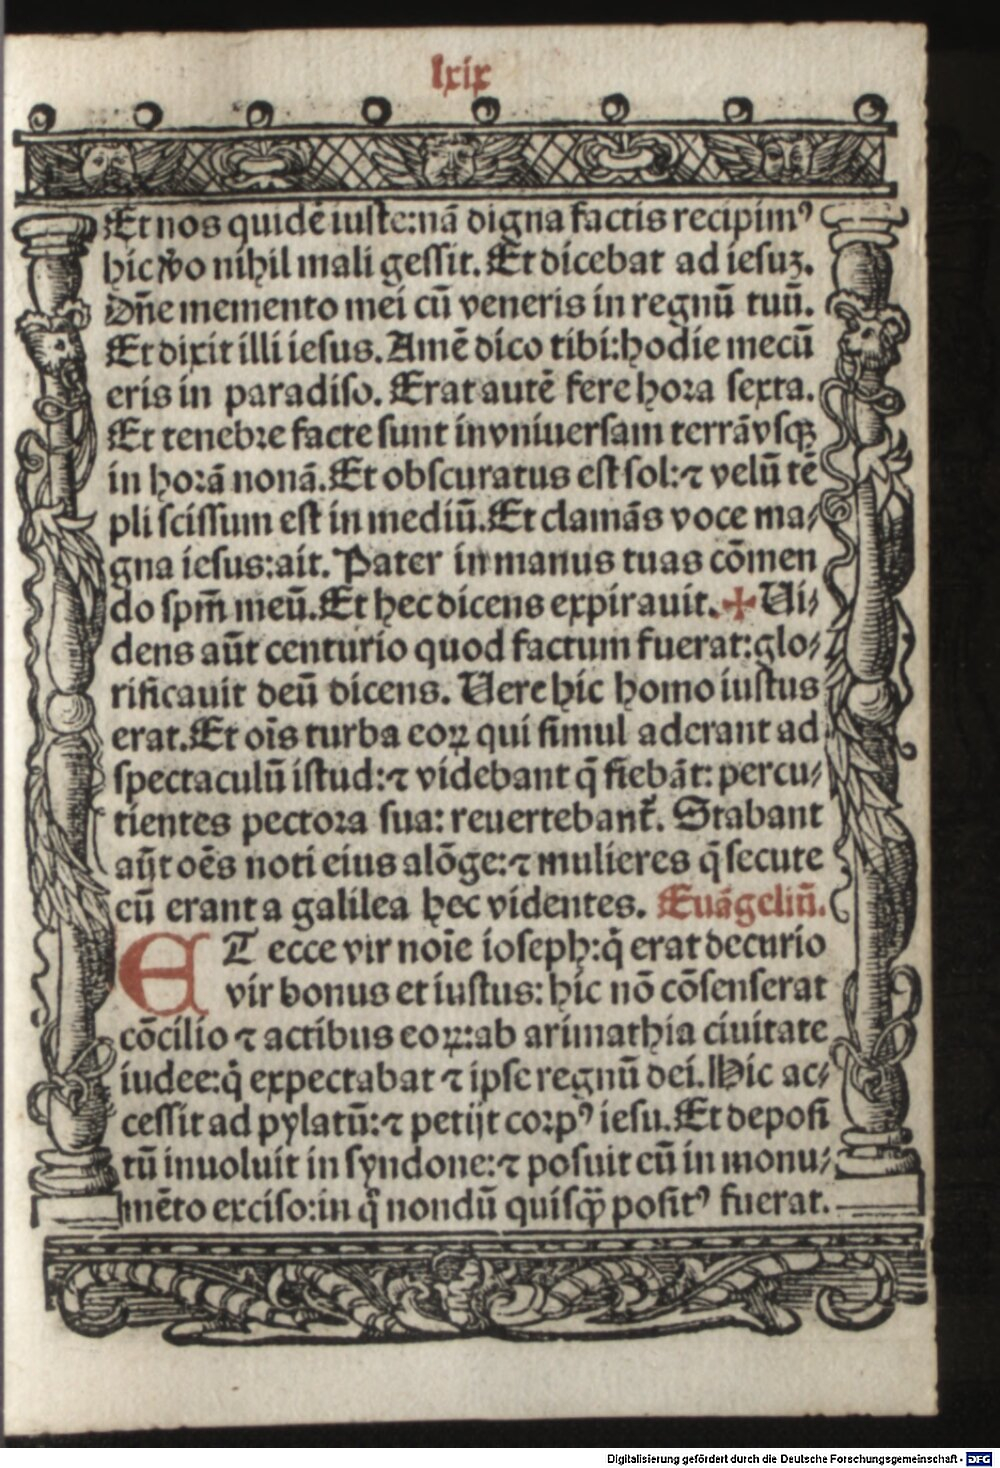 lxix
Et nos quidē iuste:nā digna factis recipimꝰ
hic v̾o nihil mali gessit. Et dicebat ad iesuꝫ.
Dn̄e memento mei cū veneris in regnū tuū.
Et dixit illi iesus. Amē dico tibi:hodie mecū
eris in paradiso. Erat autē fere hora sexta.
Et tenebre facte sunt in vniuersam terrā vsqꝫ
in horā nonā. Et obscuratus est sol:⁊ velū tē
pli scissum est in mediū. Et clamās voce ma⸗
gna iesus:ait. Pater in manus tuas cōmen
do spm̄ meū. Et hec dicens expirauit. ✠ Ui⸗
dens aūt centurio quod factum fuerat:glo⸗
rificauit deū dicens. Uere hic homo iustus
erat. Et oīs turba eoꝝ qui simul aderant ad
spectaculū istud:⁊ videbant q̄ fiebāt: percu⸗
tientes pectora sua: reuertebant̄. Stabant
aūt oēs noti eius alōge:⁊ mulieres q̄ secute
cū erant a galilea hec videntes. Euāgeliū.
ET ecce vir noīe ioseph:q̇ erat decurio
vir bonus et iustus: hic nō cōsenserat
cōcilio ⁊ actibus eoꝝ:ab arimathia ciuitate
iudee:q̇ expectabat ⁊ ipse regnū dei. Hic ac⸗
cessit ad pylatū:⁊ petijt corpꝰ iesu. Et deposi
tū inuoluit in syndone:⁊ posuit cū in monu⸗
mēto exciso:in q̊ nondū quisqꝫ̄ positꝰ fuerat.
Digitalisierung gefördert durch die Deutsche Forschungsgemeinschaft - DFG